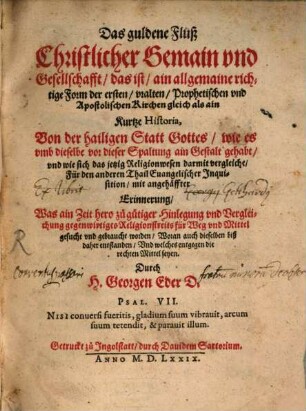 Das guldene Flüß
Christlicher Gemain vnd
Gesellschafft / das ist / ain allgemaine rich-
tige Form der ersten / vralten / Prophetischen vnd
Apostolischen Kirchen gleich als ain
Kurtze Historia,
Von der hailigen Statt Gottes / wie es
vmb dieselbe vor dieser Spaltung ain Gestalt gehabt /
vnd wie sich das jetzig Religionwesen darmit vergleiche /
Für den anderen Thail Euangelischer Inqui-
sition / mit angehäffter
Ex libris
Erinnerung /
Was ain Zeit hero zů gütiger Hinlegung vnd Verglei-
chung gegenwürtiges Religionstreits für Weg vnd Mittel
gesucht vnd gebraucht worden / Woran auch dieselben biß
daher enstanden / Vnd welches entgegen die
rechten Mittel seyen.
Durch
H. Georgen Eder D.
PSAL. VII.
NISI conuersi fueritis, gladium suum vibrauit, arcum
suum tetendit, & parauit illum.
Getruckt zů Ingolstatt / durch Dauidem Sartorium.
ANNO M. D. LXXIX.